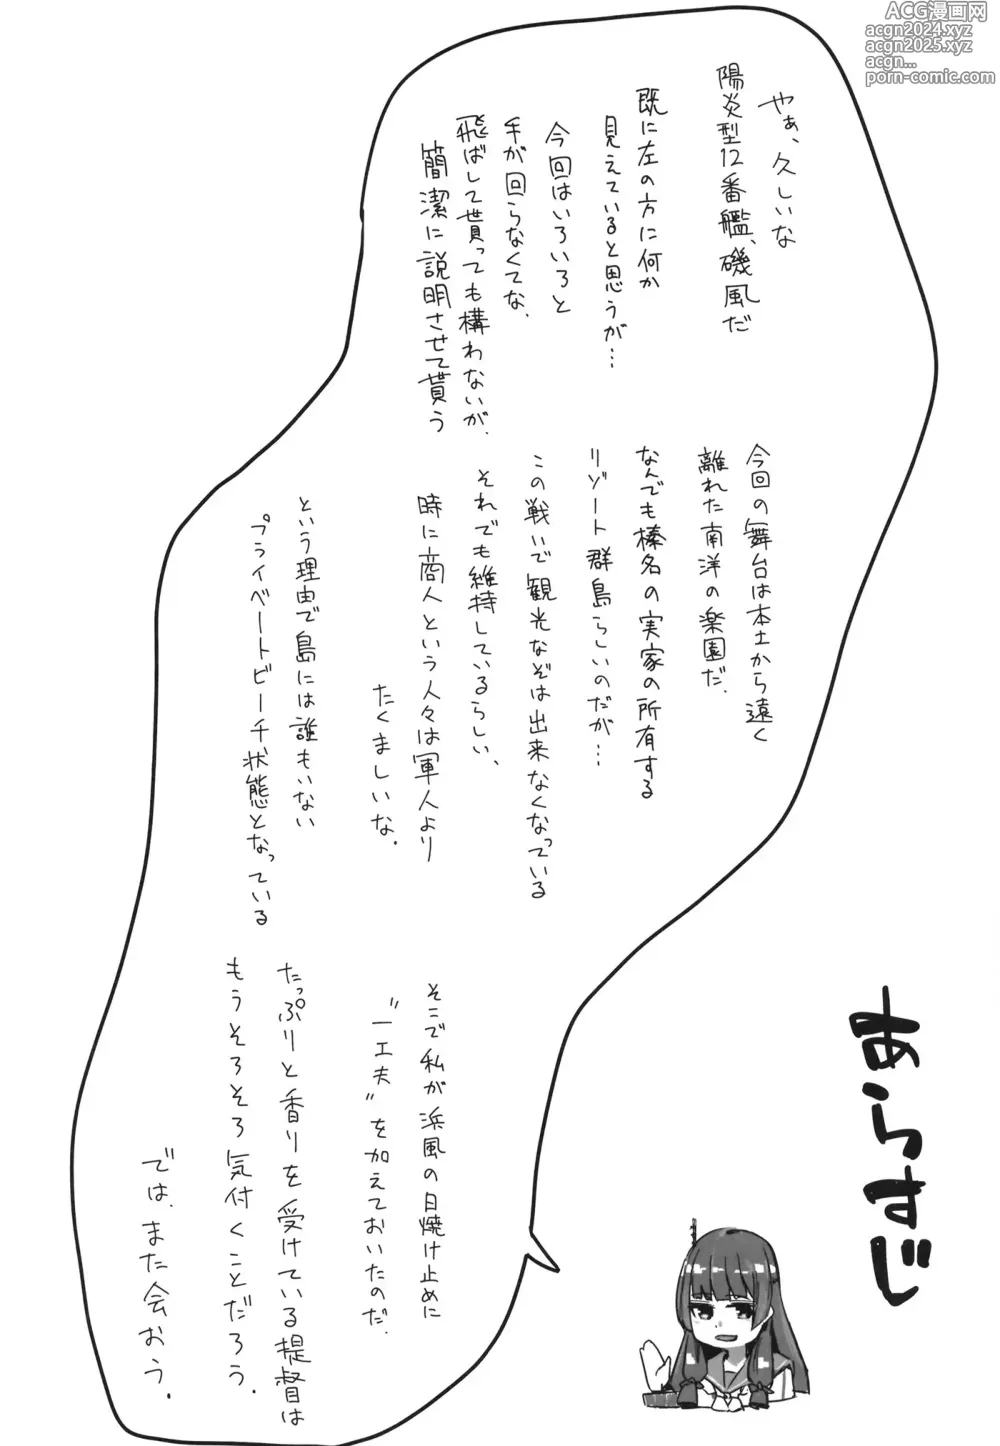 ACG漫画网
acgn2024.xyz
acgn2025.xyz
acgn...
porn-comic.com
あらすじ
やぁ、久しいな
陽炎型12番艦、磯風だ
既に左の方に何か
見えていると思うが…
今回はいろいろと
手が回らなくてな、
飛ばして貰っても構わないが、
簡潔に説明させて貰う
今回の舞台は本土から遠く
離れた南洋の楽園だ.
なんでも榛名の実家の所有する
リゾート群島らしいのだが…
この戦いで観光なぞは出来なくなっている
それでも維持しているらしい、
時に商人という人々は軍人より
たくましいな.
という理由で島には誰もいない
プライベートビーチ状態となっている
そこで私が浜風の日焼け止めに
"一工夫"を加えておいたのだ.
たっぷりと香りを受けている提督は
もうそろそろ気付くことだろう.
では、また会おう.